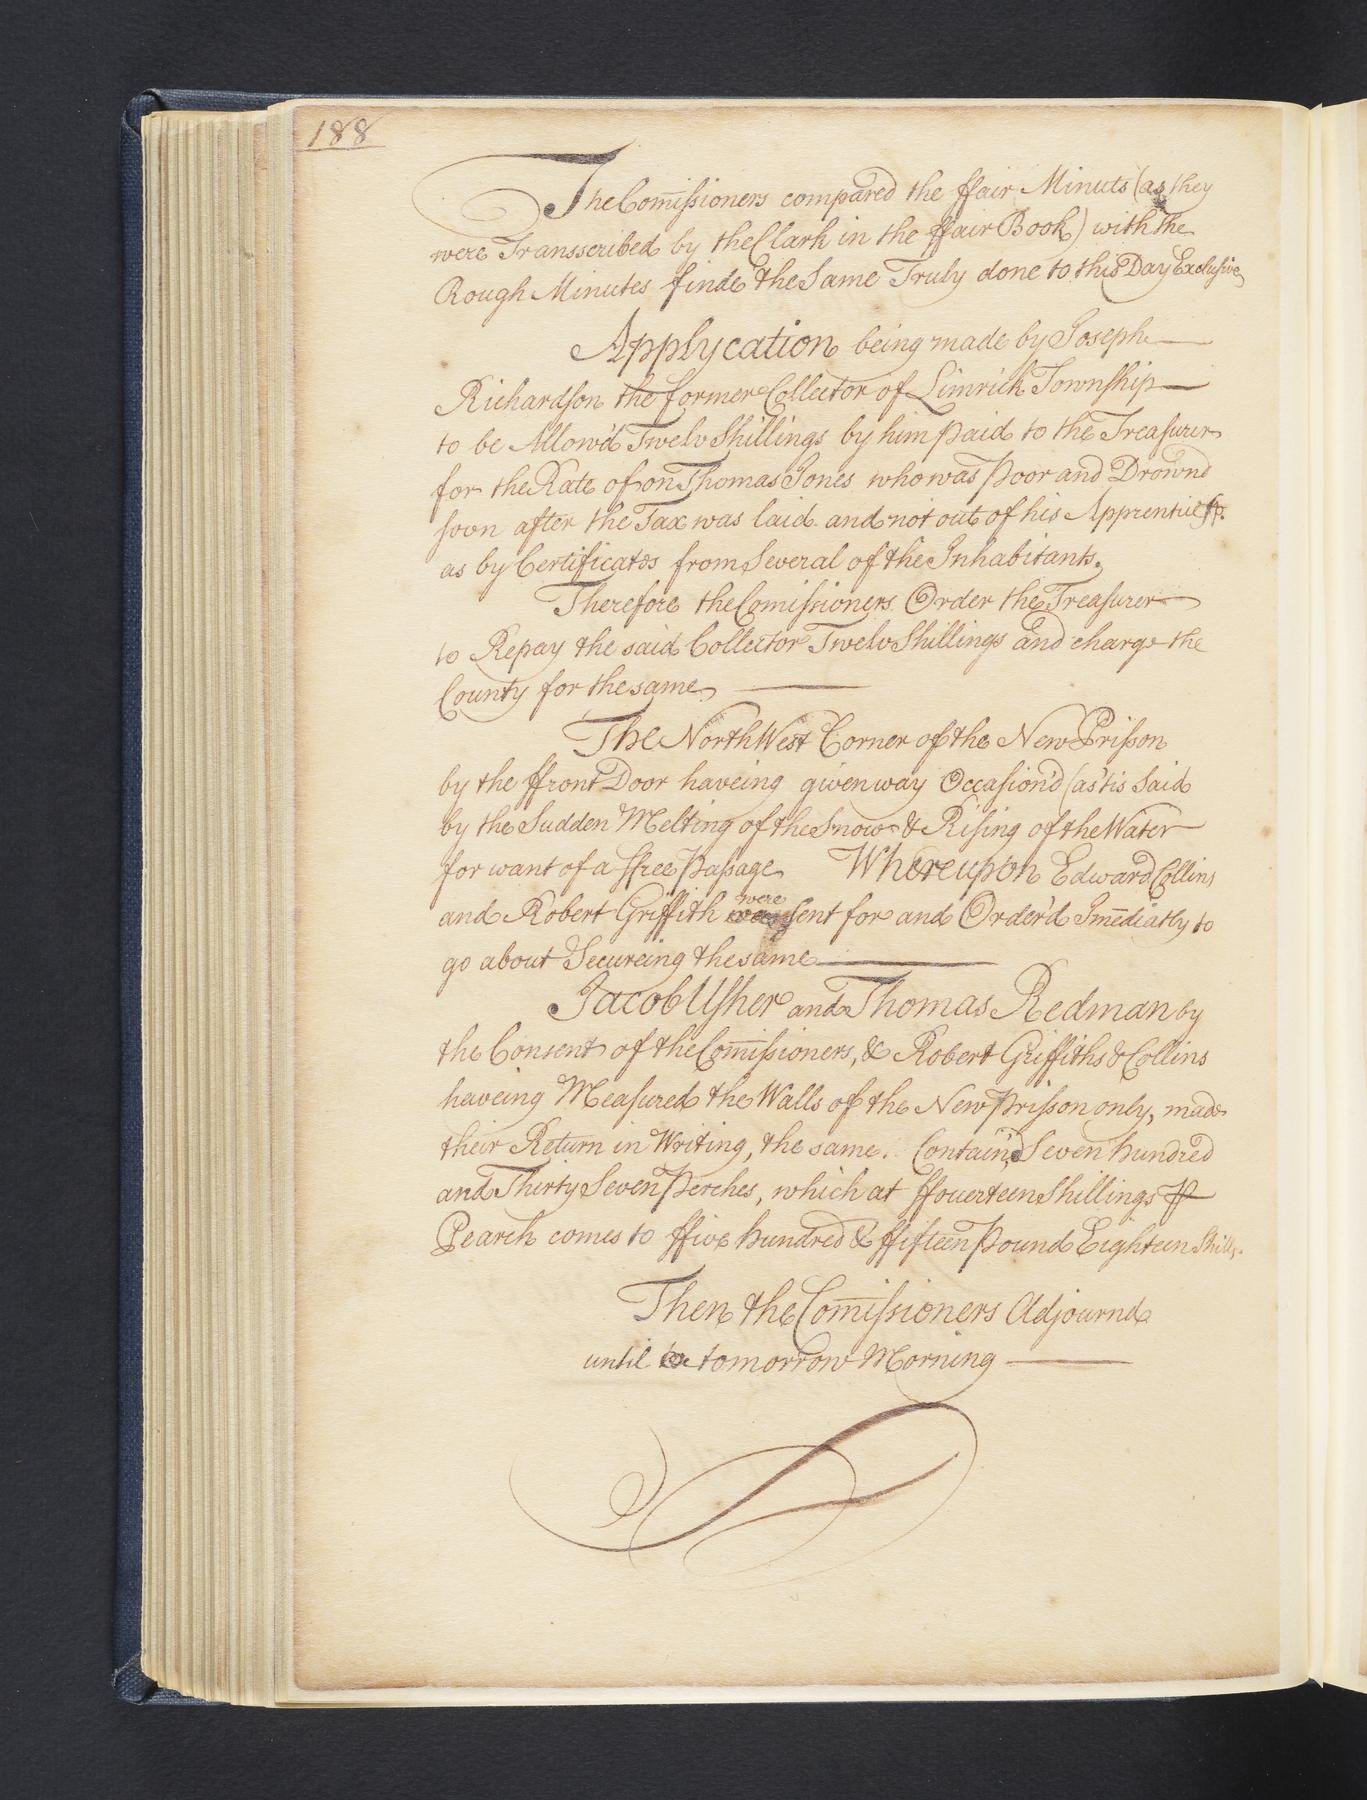 188
The Com̄issioners compared the ffair Minuts (as they
were Transscribed by the Clark in the ffair Book) with the
Rough Minutes finde the Same Truly done to this Day Exclusive
Applycation being made by Joseph
Richardson the former Collector of Limrick Township
to be Allow'd Twelv Shillings by him paid to the Treasurer
for the Rate of on Thomas Jones who was poor and Drownd
soon after the Tax was laid and not out of his
as by Certificates from Several of the Inhabitants.
Therefore the Comissioners Order the Treasurer
to Repay the said Collector Twelv Shillings and charge the
County for the same
The North West Corner of the New Prisson
by the ffront Door haveing given way Occasion'd (as 'tis Said
by the Sudden Melting of the Snow & Rising of the Water
for want of a ffree Passage Whereupon Edward Collins
and Robert Griffith were sent for and Order'd Im̄ediatly to
go about Secureing the same
Jacob Usher and Thomas Redman by
the Consent of the Com̄issioners, & Robert Griffiths & Collins
haveing Measured the Walls of the New Prisson only, made
their Return in Writing, the same Contain'd Seven hundred
and Thirty Seven Perches, which at ffouerteen Shillings ⅌
Pearch comes to ffive hundred & ffifteen pound Eighteen Shill.
Then the Com̄issioners Adjournd
until tomorrow Morning